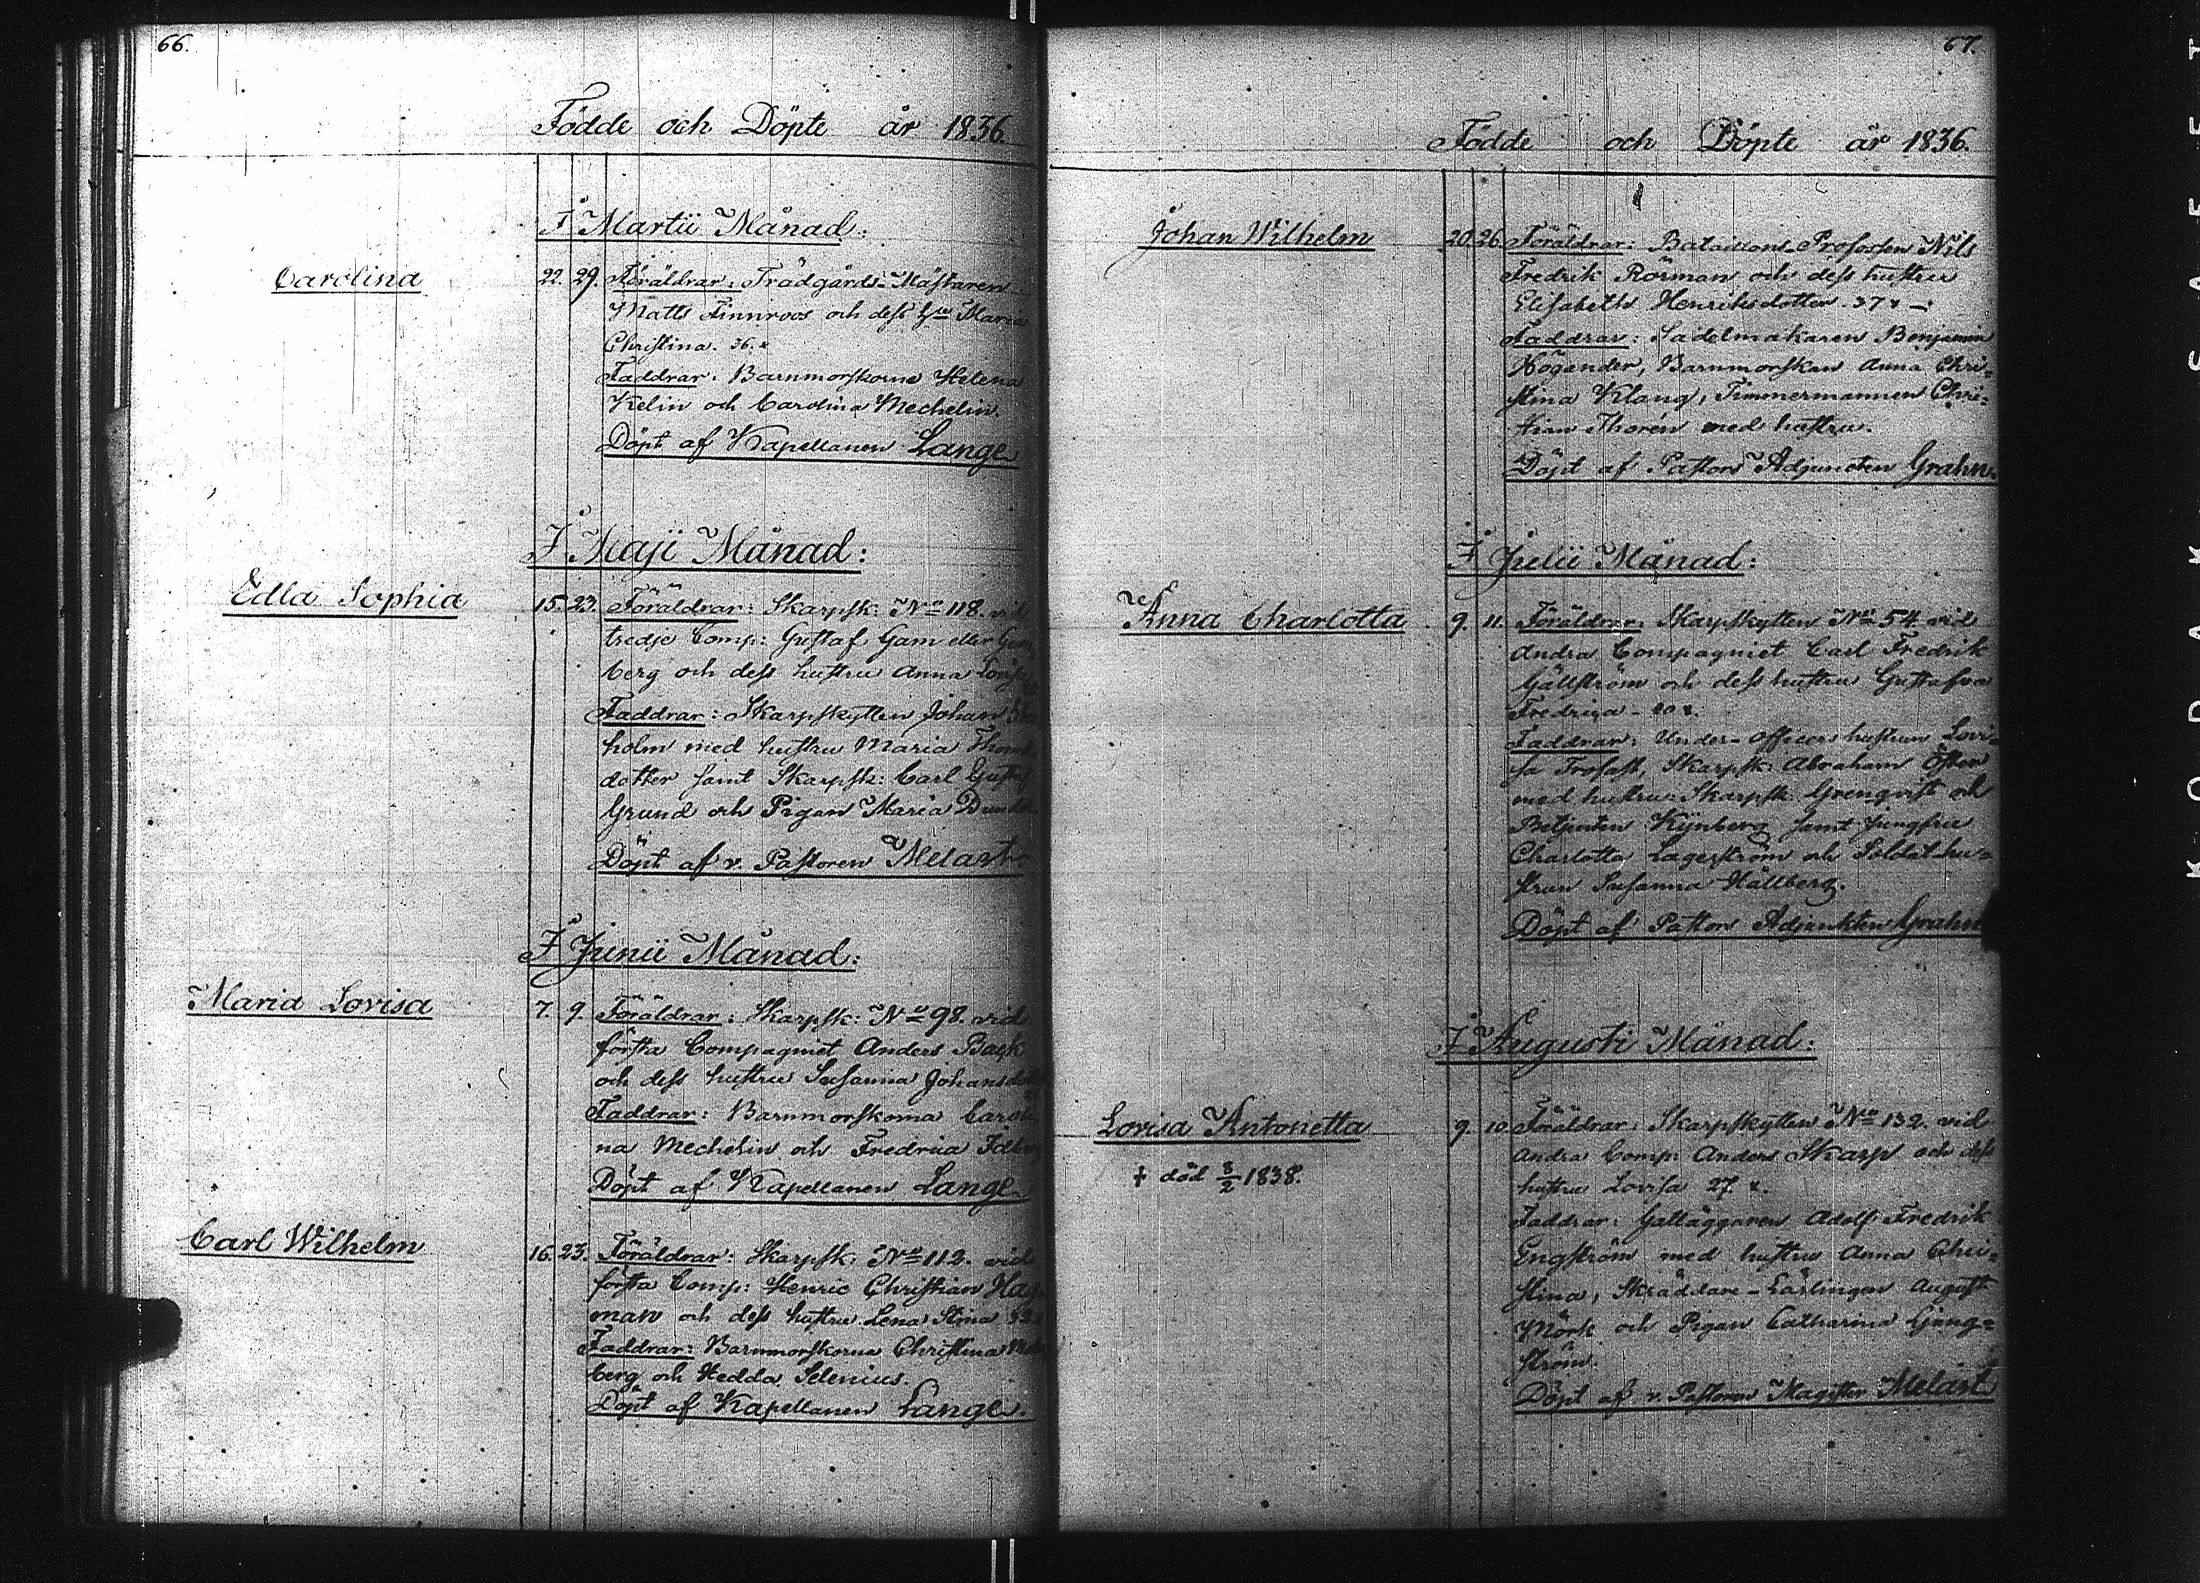 66.
Födde och Döpte år 1836.
I Martii Månad:
Carolina
22. 29. Föräldrar: Trädgårds-Mästaren
Matts Finnroos och dess hu Maria
Christina. 36.
Faddrar: Barnmorskorne Helena
Kelin och Carolina Mechelin.
Döpt af Kapellanen Lange
I Maji Månad:
Edla Sophia
15. 23. Föräldrar: Skarpsk: No 118. vid
tredje Comp: Gustaf Gam eller
berg och dess hustru Anna Lovisa
Faddrar: Skarpskytten Johan
holm med hustru Maria
dotter samt Skarpsk: Carl Gustaf
Grund och Pigan Maria
Döpt af v. Pastoren Melart
I Junii Månad:
Maria Lovisa
7. 9. Föräldrar: Skarpsk: No 98. vid
första Compagniet Anders Back
och dess hustru Susanna
Faddrar: Barnmorskorna Caroli
na Mechelin och Fredrica
Döpt af Kapellanen Lange
Carl Wilhelm
16. 23. Föräldrar: Skarpsk: No 112. vid
första Comp: Henric Christian
man och dess hustru Lena Stina
Faddrar: Barnmorskorna Christina
berg och Hedda Selenius.
Döpt af Kapellanen Lange.
67.
Födde och Döpte år 1836.
Johan Wilhelm
20. 26. Föräldrar: Bataillons-Profossen Nils
Fredrik Rörman och dess hustru
Elisabeth Henriksdotter. 37
Faddrar: Sadelmakaren Benjamin
Högander, Barnmorskan Anna Chri=
stina Klang, Timmermannen Chri=
stian Thorén med hustru.
Döpt af Pastors Adjuncten Grahn.
I Julii Månad:
Anna Charlotta
9. 11. Föräldrar: Skarpskytten No 54 vid
Andra Compagniet Carl Fredrik
Gällström och dess hustru Gustafva
Fredrica
Faddrar: Under-officers hustrun Lovi=
sa Trofast, Skarpsk: Abraham Östen
med hustru: Skarpsk: Grenqvist och
Betjenten Kynberg samt Jungfru
Charlotta Lagerström och Soldat-hu=
strun Susanna Hällberg.
Döpt af Pastors Adjunkten Grahn
I Augusti Månad:
Lovisa Antonetta
† död 3/2 1838.
9. 10. Föräldrar: Skarpskytten No 132. vid
andra Comp: Anders Skarp och dess
hustru Lovisa 27.
Faddrar: Gatläggaren Adolf Fredrik
Engström med hustru Anna Chri=
stina, Skräddare-Lärlingen August
Mörk och Pigan Catharina Ljung=
ström.
Döpt af v. Pastoren Magister Melart
KODAK SAFET